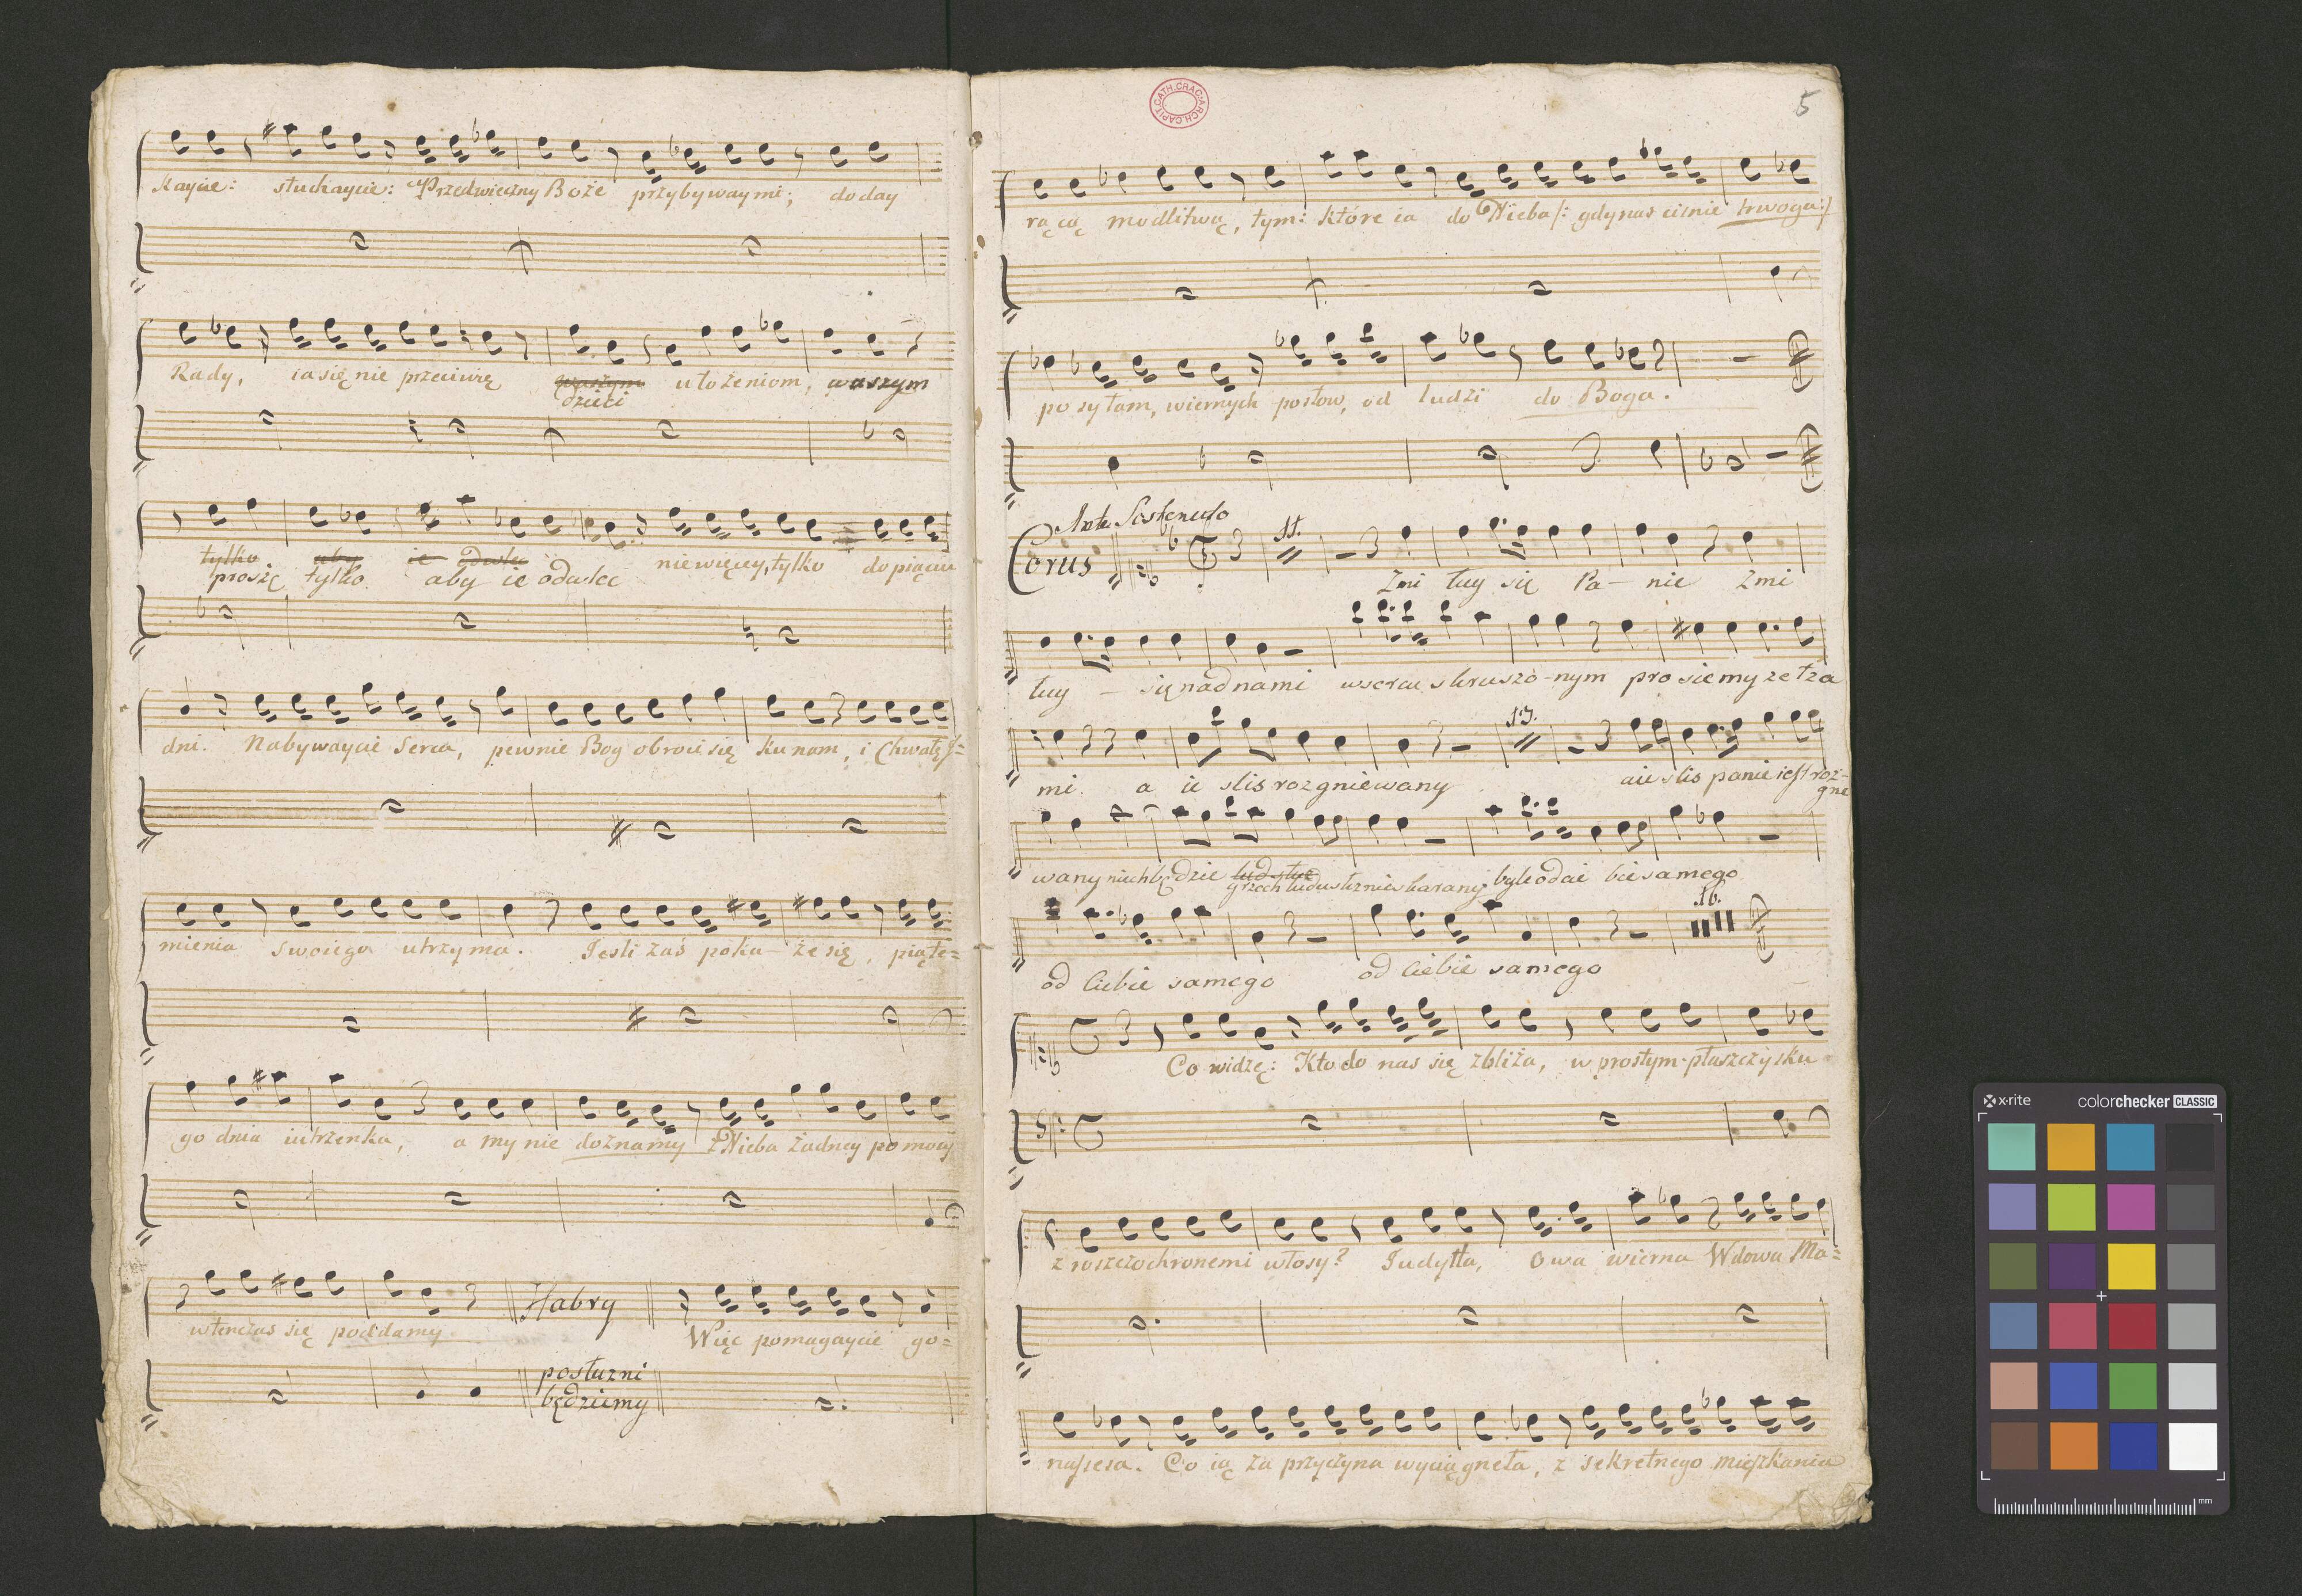 kaycie: słuchaycie: Przedwieczny Boże przybyway mi; doday
Rady, ia się nie przeciwię waszym ułożeniom, waszym
dzieci
tylko aby ie
proszę tylko aby ie odwlec niewięcey, tylko do pięciu
dni. Nabywaycie Serca, pewnie Bog obroci się ku nam, i Chwałę J=
mienia swoiego utrzyma. Jesli zaś poka- że się, piąte=
go dnia iutrzenka, a my nie doznamy z Nieba żadney pomocy
wtenczas się poddamy Habry Więc pomagaycie go=
posłuzni
będziemy
CATH. CRAC. ARCH. CAPIT.
5
rącą modlitwą, tym: które ia do Nieba /: gdy nas cisnie trwoga :/
posyłam, wiernych posłow, od ludzi do Boga.
Andte Sostenuto
Corus 11. Zmi łuy się Pa- nie Zmi
łuy - się nad nami wsercu skruszo-nym prosiemy ze łza
mi. a ie slis rozgniewany 13. aie slis panie iest roz-
gnie
wany niech będzie grzech ludu słznie skarany byle od cie bie samego
16.
od Ciebie samego od Ciebie samego
Co widzę: Kto do nas się zbliża, w prostym płaszczysku
z roszczochronemi włosy? Judytta, Owa wierna Wdowa Ma=
nassesa. Co ią za przyczyna wyciągneła, z sekretnego mięszkania
x-rite colorchecker CLASSIC
mm